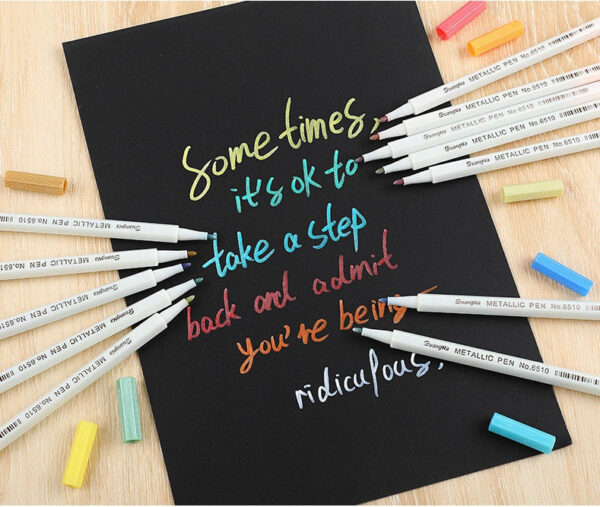 Sometimes,
it's ok to
take a step
back and admit
you're being
ridiculous.
Guangna METALLIC PEN No.6510
METALLIC PEN No.6510
METALLIC PEN No.6510
Guangna METALLIC PEN No.6510
Guangna METALLIC PEN No.6510
Guangna METALLIC PEN No.6510
Guangna METALLIC PEN No.6510
Guangna METALLIC PEN No.6510
Guangna METALLIC PEN No.6510
Guangna METALLIC PEN No.6510
Guangna METALLIC PEN No.6510
Guangna METALLIC PEN No.6510